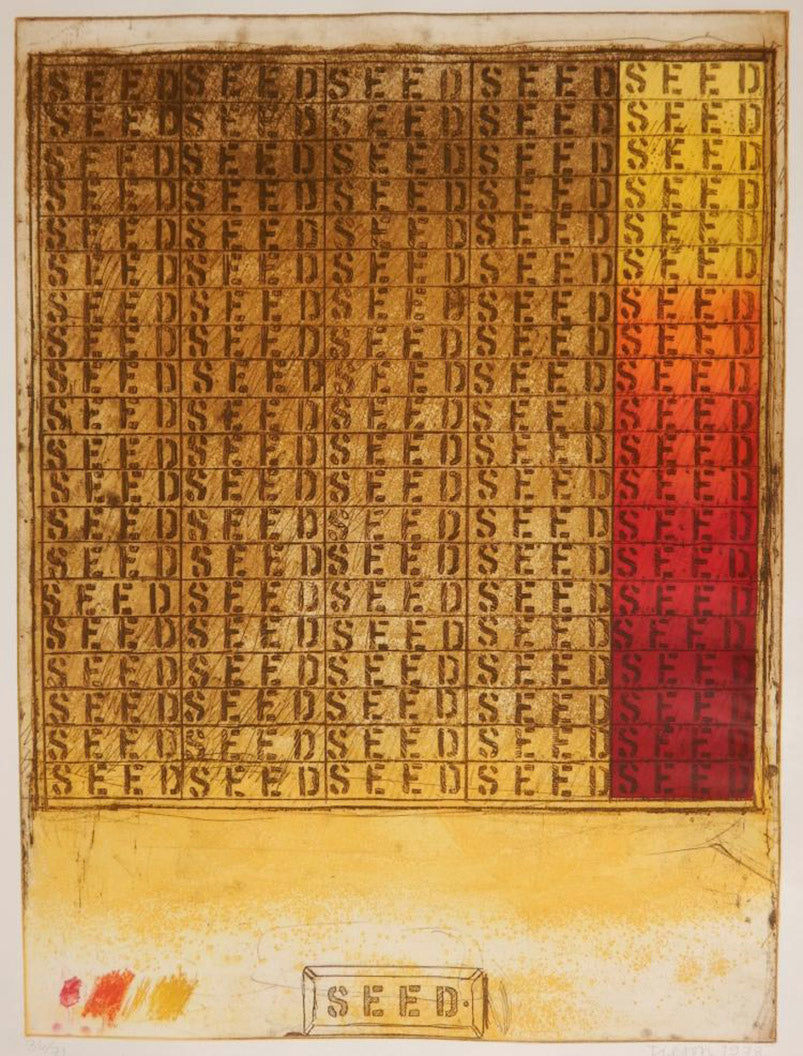 SEED SEED SEED SEED SEED
SEED SEED SEED SEED SEED
SEED SEED SEED SEED SEED
SEED SEED SEED SEED SEED
SEED SEED SEED SEED SEED
SEED SEED SEED SEED SEED
SEED SEED SEED SEED SEED
SEED SEED SEED SEED SEED
SEED SEED SEED SEED SEED
SEED SEED SEED SEED SEED
SEED SEED SEED SEED SEED
SEED SEED SEED SEED SEED
SEED SEED SEED SEED SEED
SEED SEED SEED SEED SEED
SEED SEED SEED SEED SEED
SEED SEED SEED SEED SEED
SEED SEED SEED SEED SEED
SEED SEED SEED SEED SEED
SEED SEED SEED SEED SEED
SEED SEED SEED SEED SEED
SEED.